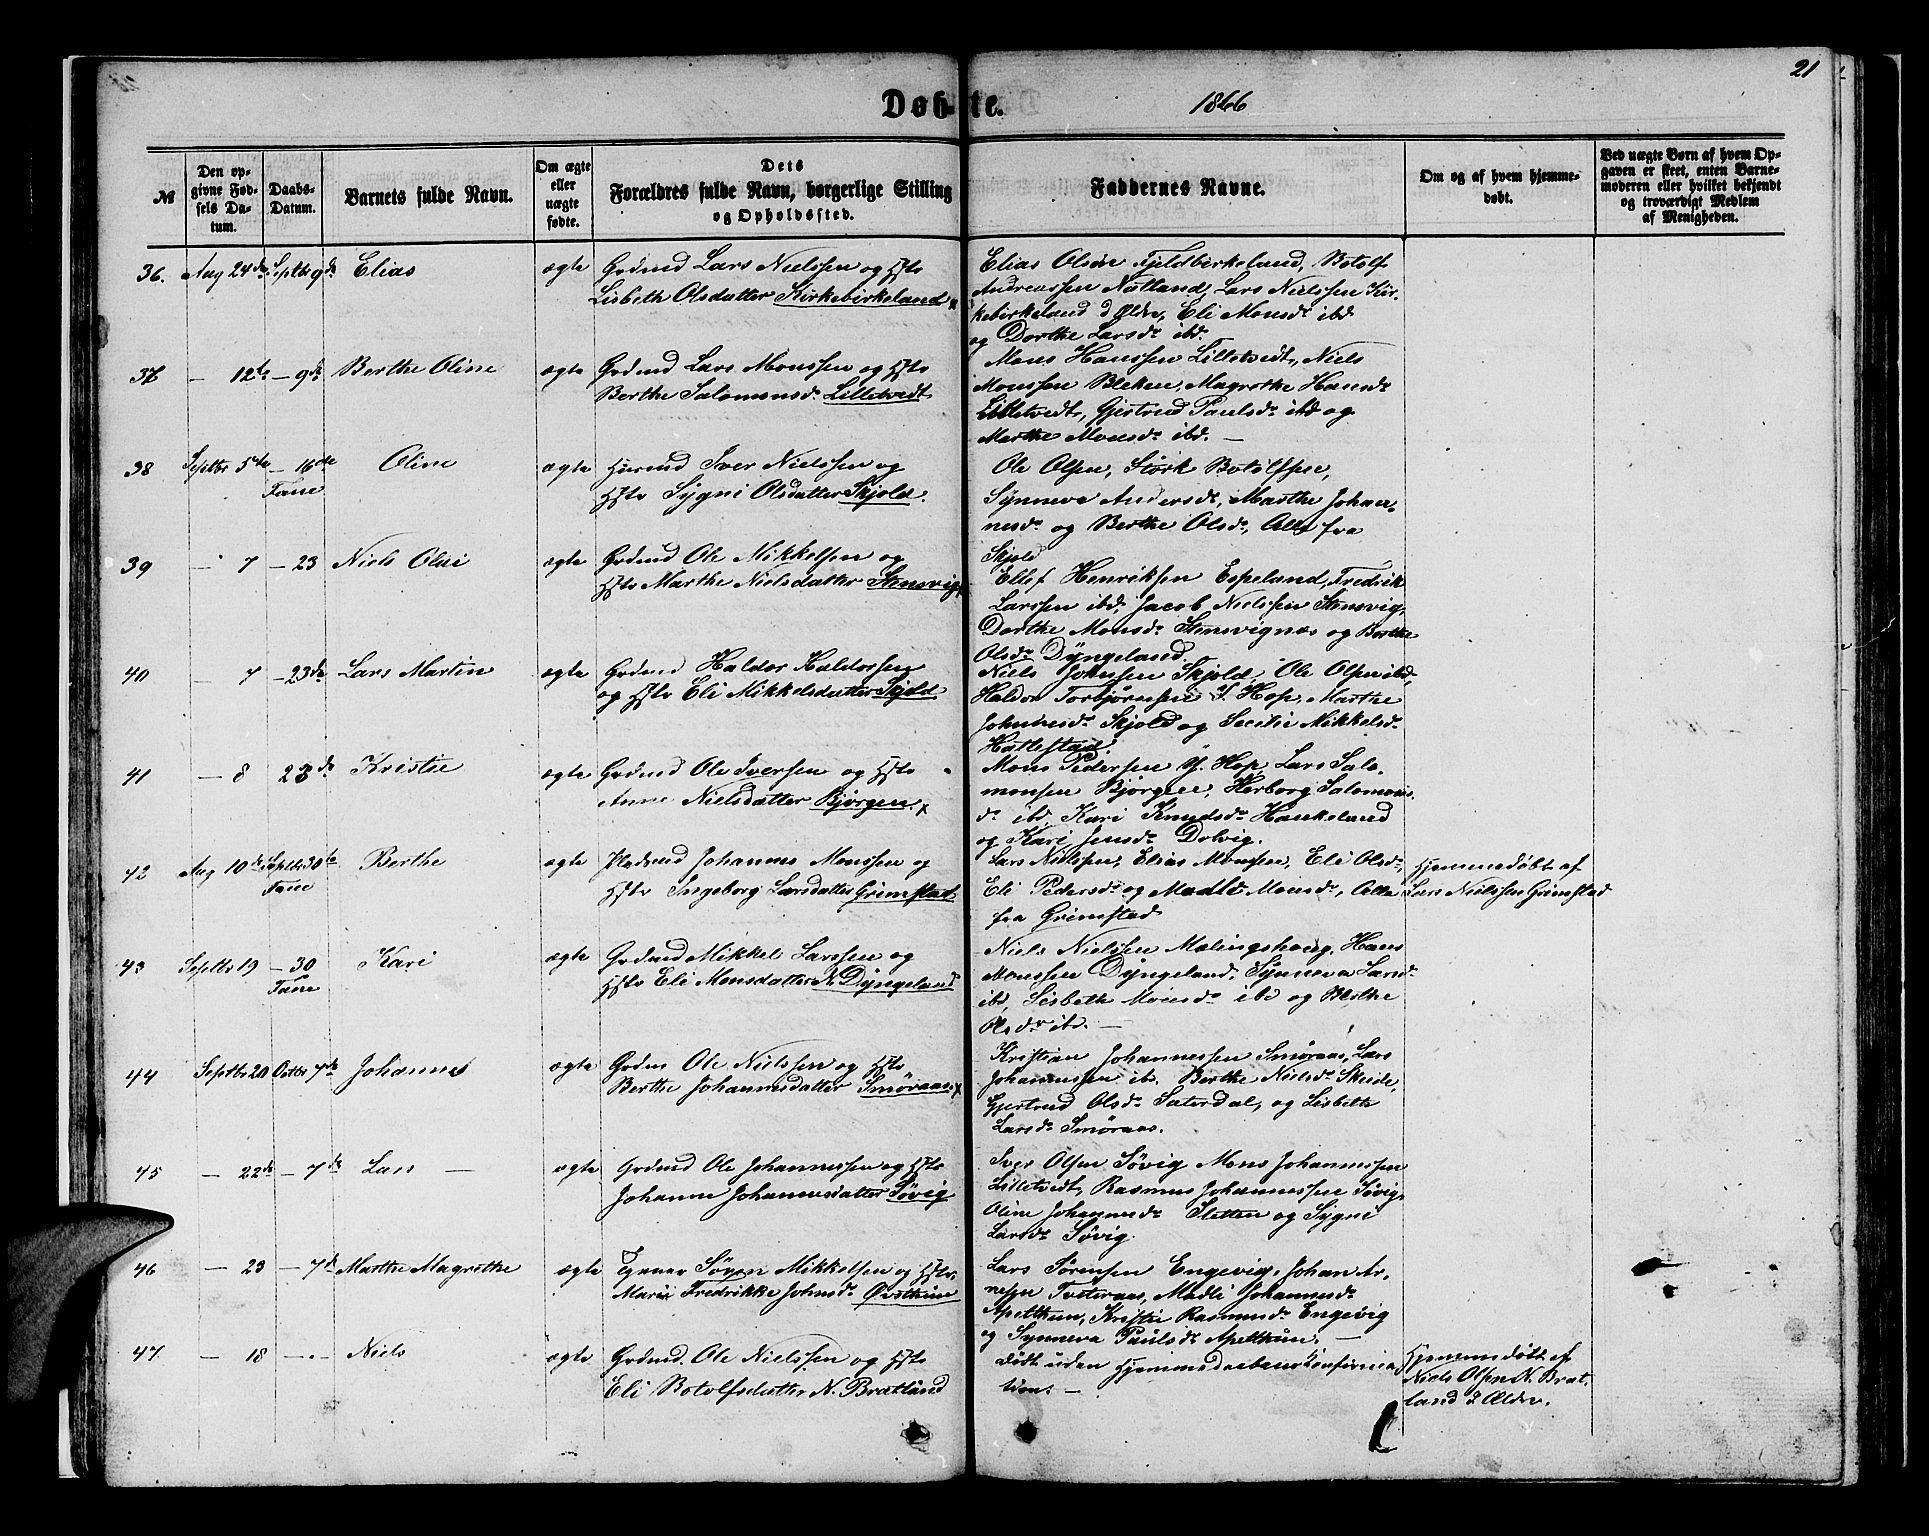 21
Døbte.
1866
№
Den op-
givne Fød-
sels Da-
tum.
Daabs-
Datum.
Barnets fulde Navn.
Om ægte
eller
uægte
fødte.
Dets
Forældres fulde Navn, borgerlige Stilling
og Opholdssted.
Faddernes Navne.
Om og af hvem hjemme-
døbt.
Ved uægte Børn af hvem Op-
gaven er skeet, enten Barne-
moderen eller hvilket bekjendt
og troværdigt Medlem
af Menigheden.
36. Aug 24de Septbr 9de Elias ægte Grdmd Lars Nielssen og Hstr
Lisbeth Olsdatter Kirkebirkeland x
Elias Olsen Fjeldbirkeland, Botolf
Andreassen Natland, Lars Nielssen Kir-
kebirkeland d Ældre, Eli Monsdr ibd
og Dorthe Larsdr ibd.
37 — 12te — 9de Berthe Oline ægte Grdmd Lars Monssen og Hstr
Berthe Salomonsdr Lilletvedt
Mons Hanssen Lilletvedt, Niels
Monssen Bleken, Magrethe Hansdr
Lilletvedt, Gjertrud Paulsdr ibd og
Marthe Monsdr ibd. —
38 Septbr 5te — 16de Oline ægte Huusmd Iver Nielssen og
Fane
Hstr Sygni Olsdatter Skjold.
Ole Olsen, Størk Botolfsen,
Synneva Andersdr, Marthe Johan-
nesdr og Berthe Olsdr, Alle fra
Skjold
39 — 7 — 23 Niels Olai ægte Grdmd Ole Mikkelsen og
Hstr Marthe Nielsdatter Stensvig x
Ellef Henriksen Espeland, Fredrik
Larssen ibd, Jacob Nielssen Stensvig,
Dorthe Monsdr Stensvignæs og Berthe
Olsdr Dyngeland.
40 — 7 — 23de Lars Martin ægte Grdmd Haldor Haldorssen
og Hstr Eli Mikkelsdatter Skjold
Niels Johnssen Skjold, Ole Olsen ibd,
Haldor Torbjørnsen Y. Hop, Marthe
Johnnesdr Skjold og Secilie Mikkelsdr
Hattestad.
41 — 8 23de Kristie ægte Grdmd Ole Iversen og Hstr
Anne Nielsdatter Bjørgen. x
Mons Pedersen Y. Hop, Lars Salo-
monsen Bjørgen, Herborg Salomons-
dr ibd, Kari Knudsdr Haukeland
og Kari Jensdr Dolvig.
42 Aug 10de Septbr 30te Berthe ægte Pladsmd Johannes Monssen og
Fane
Hstr Ingeborg Larsdatter Grimstad
Lars Nielssen, Elias Monsen, Eli Olsdr,
Eli Pedersdr og Madle Monsdr, Alle
fra Grimstad
Hjemmedøbt af
Lars Nielssen Grimstad
43 Septbr 19 — 30 Kari ægte Grdmd Mikkel Larssen og
Fane
Hstr Eli Monsdatter N. Dyngeland
Niels Nielssen Malingshaug, Hans
Monssen Dyngeland, Synneva Larsdr
ibd, Lisbeth Monsdr ibd og Berthe
Olsdr ibd. —
44 Septbr 20 Octbr 7de Johannes ægte Grdm Ole Nielssen og Hstr
Berthe Johannesdatter Smøraas x
Kristian Johannessen Smøraas, Lars
Johannessen ibd. Berthe Nielsdr Skeide,
Gjertrud Olsdr Sæterdal, og Lisbeth
Larsdr Smøraas.
45 — 22de — 7de Lars — ægte Grdmd Ole Johannessen og Hstr
Johanne Johannesdatter Søvig
Iver Olsen Søvig Mons Johannessen
Lilletvedt, Rasmus Johannessen Søvig,
Oline Johannesdr Sletten og Sygni
Larsdr Søvig.
46 — 23 — 7de Marthe Magrethe ægte Søren Mikkelsen og Hstr
Marie Fredrikke Johnsdr Øvsthun
Lars Sørensen Engevig, Johan Ar-
nesen Tveteraas, Madli Johannesdr
Apelthun, Kristie Rasmusdr Engevig
og Synneva Paulsdr Apelthun. —
47. — 18 — — Niels ægte Grdmd. Ole Nielssen og Hstr
Eli Botolfsdatter N. Bratland
Død uden Hjemmedaabens Konfirma-
tion. —
Hjemmedøbt af
Niels Olsen N. Brat-
land d Ældre.